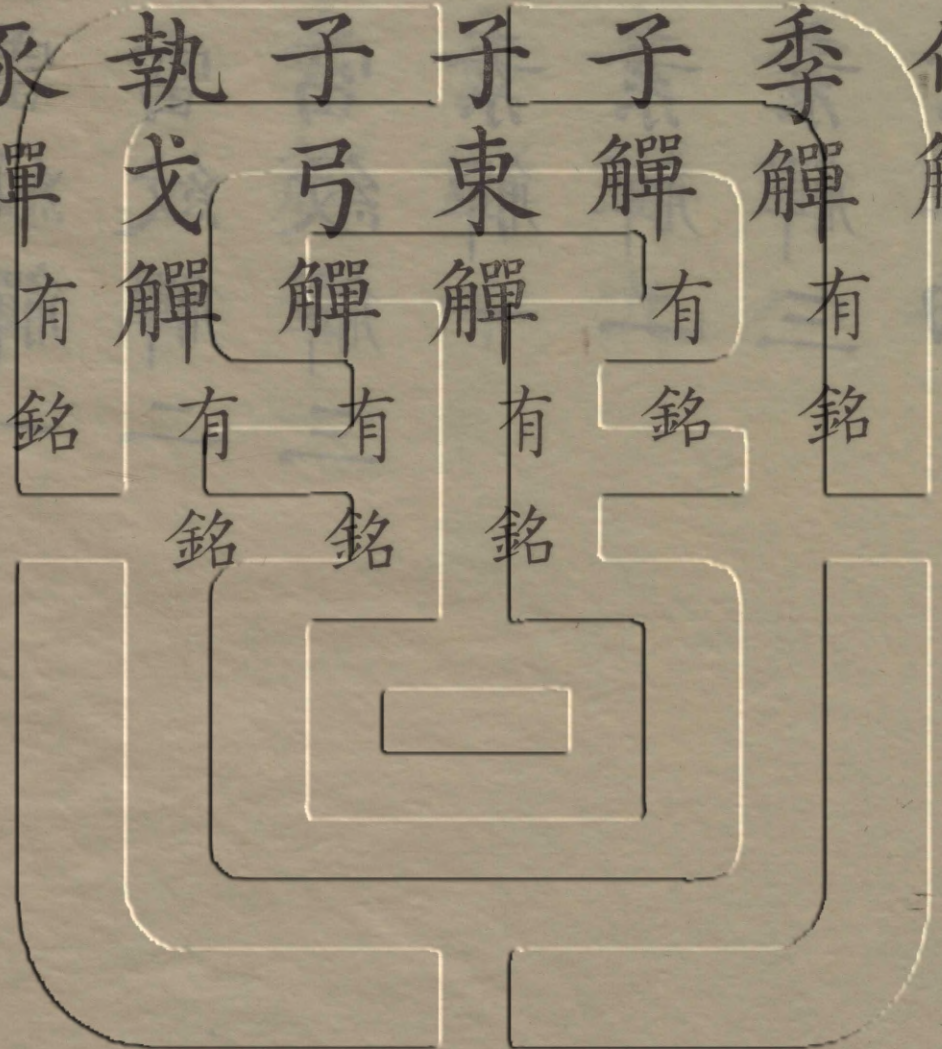 季觶有銘
子觶有銘
子東觶有銘
子弓觶有銘
執戈觶有銘
豕觶有銘